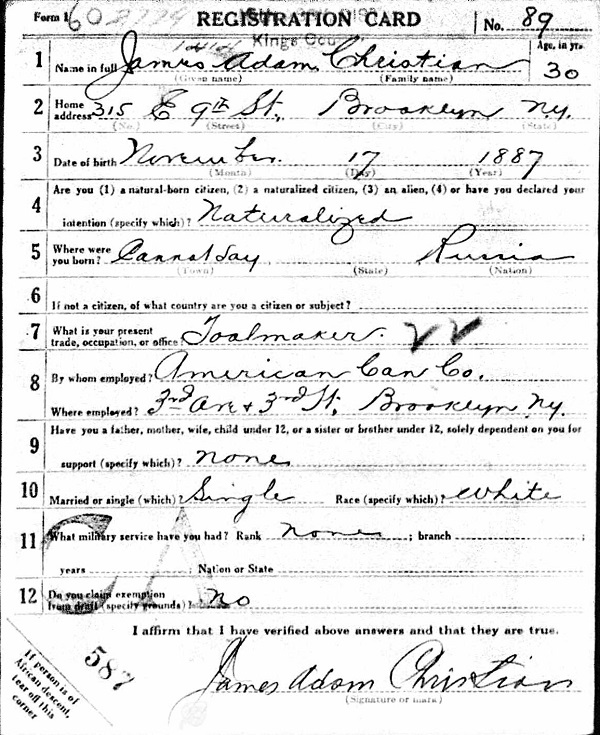 Form 1 REGISTRATION CARD No. 89
Kings Cou
1 Name in full James Adam Christian Age, in yrs. 30
(Given name) (Family name)
2 Home address 315 E 9th St., Brooklyn Ny.
(No.) (Street) (City) (State)
3 Date of birth November 17 1887
(Month) (Day) (Year)
4 Are you (1) a natural-born citizen, (2) a naturalized citizen, (3) an alien, (4) or have you declared your
intention (specify which)? Naturalized
5 Where were you born? Cannot Say Russia
(Town) (State) (Nation)
6 If not a citizen, of what country are you a citizen or subject?
7 What is your present trade, occupation, or office? Toolmaker.
8 By whom employed? American Can Co.
Where employed? 3rd Ave + 3rd St. Brooklyn Ny.
9 Have you a father, mother, wife, child under 12, or a sister or brother under 12, solely dependent on you for
support (specify which)? none
10 Married or single (which)? Single Race (specify which)? White
11 What military service have you had? Rank none ; branch ;
years ; Nation or State
12 Do you claim exemption from draft (specify grounds)? no
I affirm that I have verified above answers and that they are true.
587
James Adam Christian
(Signature or mark)
If person is of
African descent,
tear off this
corner